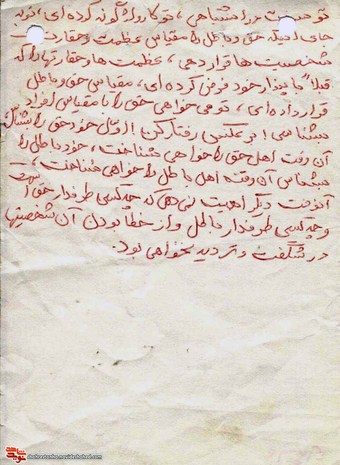 تو سخت در اشتباهی، تو کار واژگونه کرده‌ای، تو به
جای اینکه حق و باطل را مقیاس عظمت و حقارت
شخصیت‌ها قرار دهی، عظمت‌ها و حقارتها را که
قبلاً با پندار خود فرض کرده‌ای، مقیاس حق و باطل
قرار داده‌ای، تو می‌خواهی حق را با مقیاس افراد
بشناسی! برعکس رفتار کن! اول خود حق را بشناس
آن وقت اهل حق را خواهی شناخت، خود باطل را
بشناس آن وقت اهل باطل را خواهی شناخت،
آنوقت دیگر اهمیت نمی‌دهی که چه کسی طرفدار حق است
و چه کسی طرفدار باطل و از خطا بودن آن شخصیتها
در شگفت و تردید نخواهی بود.